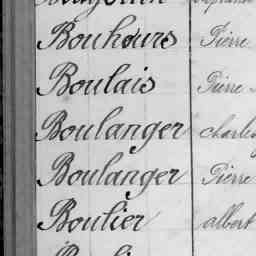 Bouhours Pierre
Boulais Pierre
Boulanger Charles
Boulanger Pierre
Boulier albert